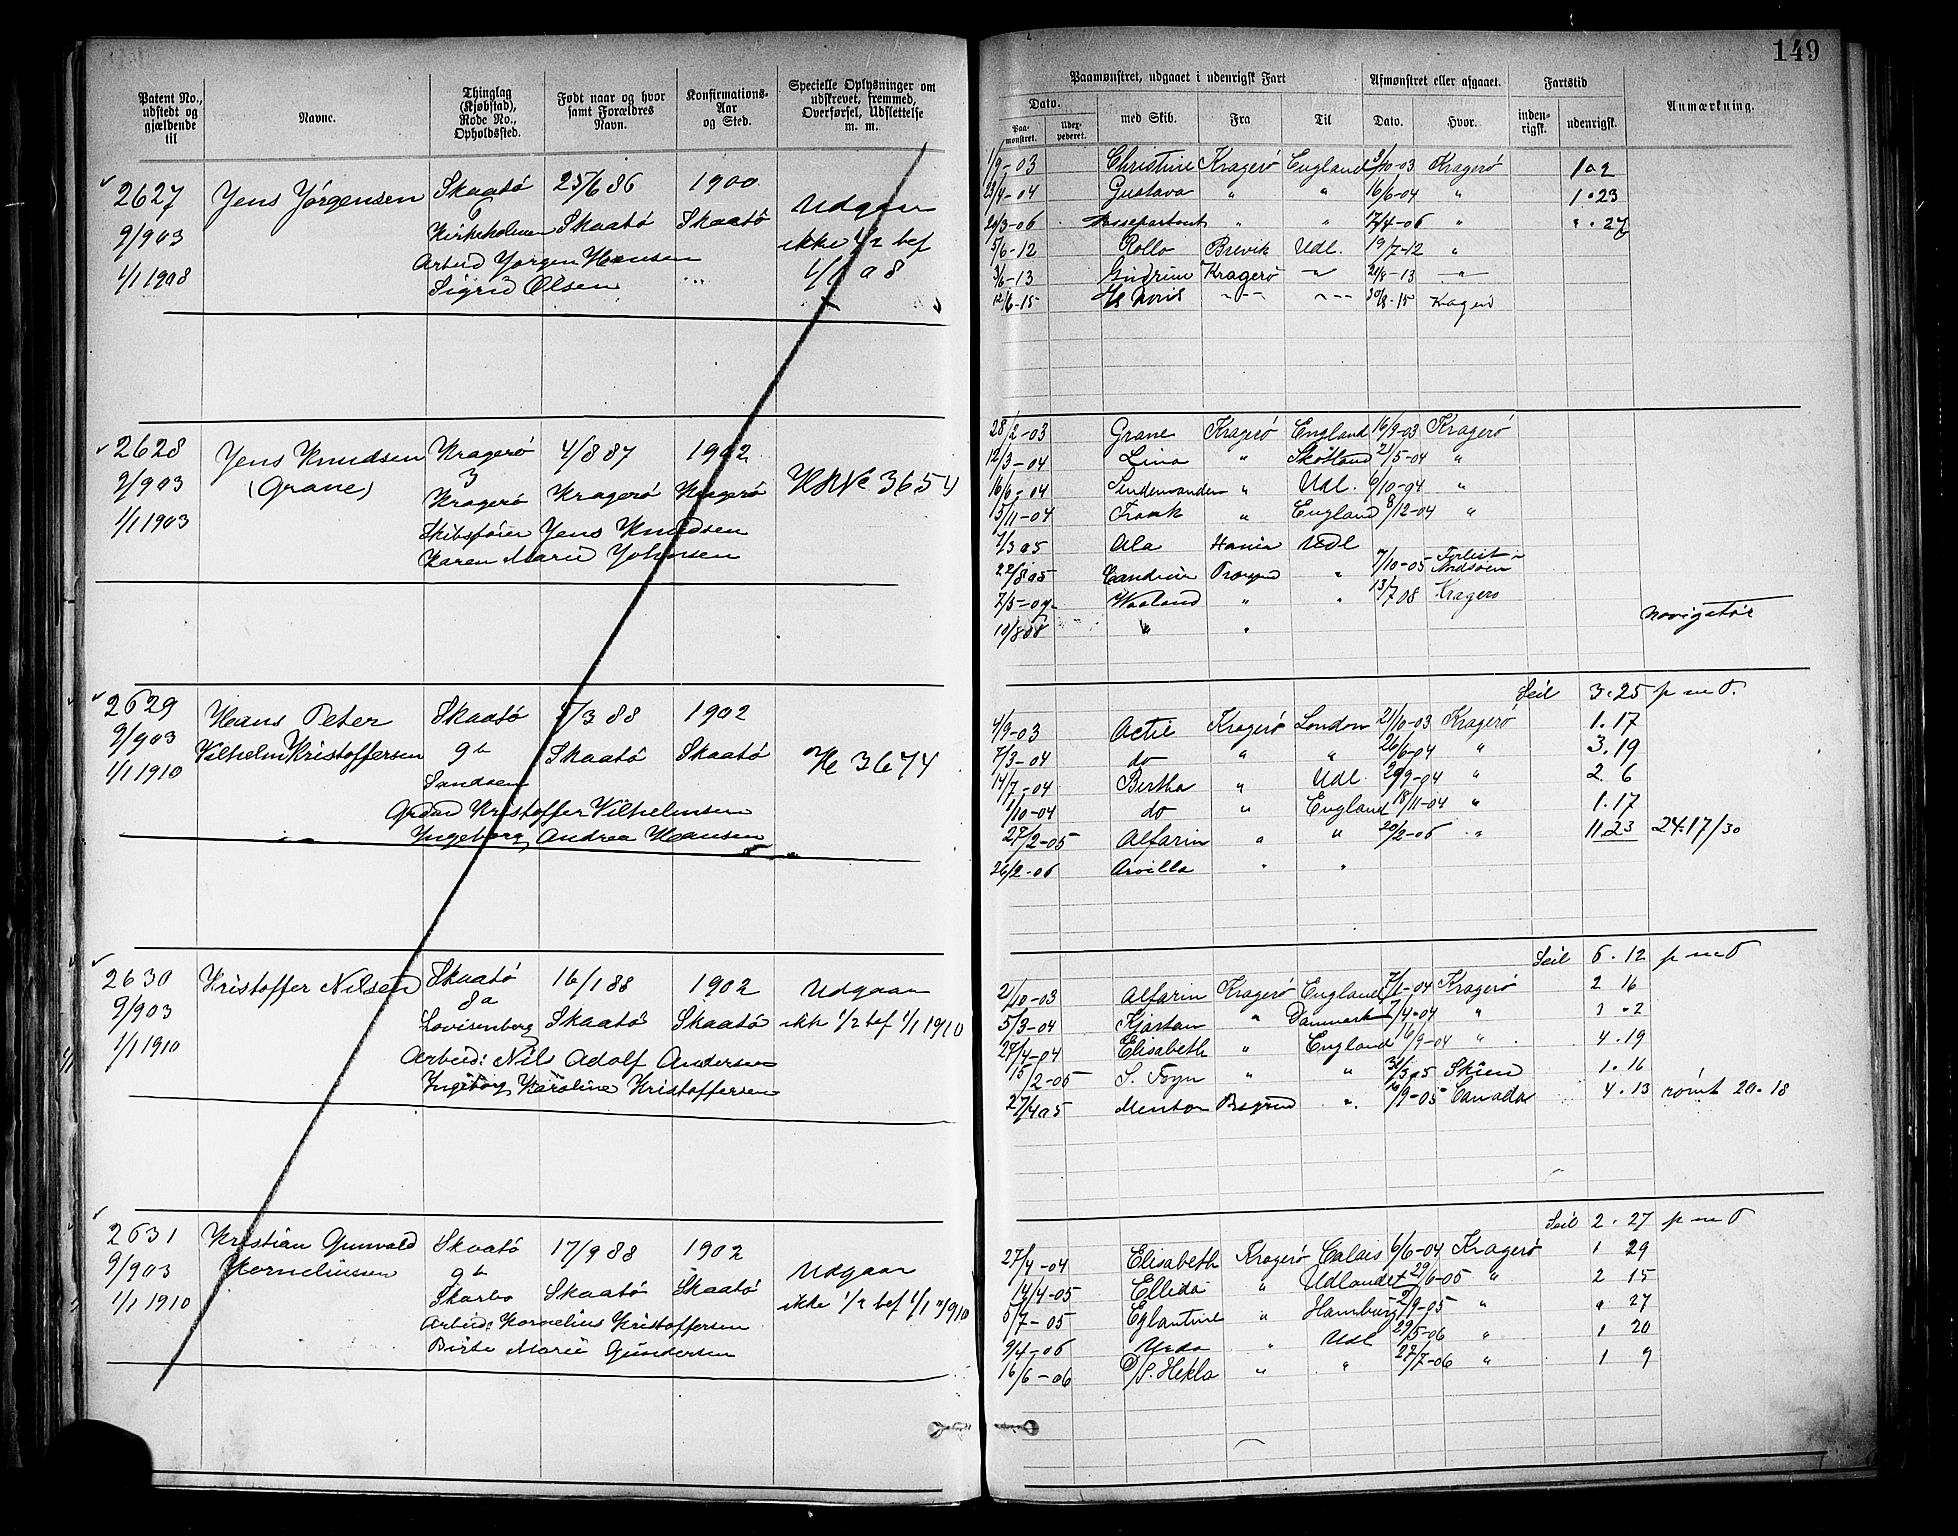 149
Patent No., udstedt og gjældende til
Navne.
Thinglag (Kjøbstad), Rode No., Opholdssted.
Født naar og hvor samt Forældres Navn.
Konfirmations-Aar og Sted.
Specielle Oplysninger om udskrevet, fremmed, Overførsel, Udslettelse m. m.
Paamønstret, udgaaet i udenrigsk Fart
Afmønstret eller afgaaet.
Fartstid
Anmærkning.
Dato.
Paa-mønstret.
Udex-pederet.
med Skib.
Fra
Til
Dato.
Hvor.
inden-rigsk.
udenrigsk.
2627 Jens Jörgensen Skaatö 25/6 86 1900 Udgaar
9/903 6 Kirkeholmen Skaatö Skaatö ikke 1/2 bef
1/1 1908 Arbeid Jörgen Hansen 1/1 08
Sigrid Olsen
1/9-03 Christine Kragerö England 3/10-03 Kragerö 1 2
23/4-04 Gustava " " 16/6-04 " 1 23
20/3-06 Passepartout " " 17/4-06 " 27
5/6-12 Rollo Brevik Udl. 19/7-12 "
3/6-13 Gudrun Kragerö 21/8-13
12/6-15 30/8-15 Kragerö
2628 Jens Knudsen Kragerö 4/8 87 1902
9/903 (Grane) 3 Kragerö Kragerö Kragerö No 3654
1/1 1903 Skibsfører Jens Knudsen
Karen Marie Johnsen
28/2-03 Grane Kragerö England 16/9-03 Kragerö
12/3-04 Lina " Skotland 21/5-04 "
16/6-04 " Udl. 6/10-04 "
5/11-04 Frank " England 8/12-04 "
1/3 05 Ala Udl
22/8 05 " 7/10-05 Forlist Nordsöen
Waaland " " 13/7 08 Kragerö
10/8 08 " " navigatör
2629 Hans Peter Skaatö 5/3 88 1902
9/903 Vilhelm Kristoffersen 9b Skaatö Skaatö No 3674
1/1 1910 Sandaen
Kristoffer Vilhelmsen
Ingeborg Andrea Hansen
Seil 3.25 p m S.
4/9-03 Activ Kragerö London 21/10-03 Kragerö 1.17
7/3-04 do " " 26/6-04 " 3.19
14/7-04 Bertha " Udl. 20/9-04 " 2 6
1/10-04 do " England 18/11-04 " 1.17
27/2-05 Alfarin " " 20/2-06 " 11.23 24.17/30
26/2-06 Arvilla " "
2630 Kristoffer Nilsen Skaatö 16/1 88 1902 Udgaar
9/903 8a Lovisenberg Skaatö Skaatö ikke 1/2 bef 1/1 1910
1/1 1910 Arbeid: Nils Adolf Andersen
Ingeborg Karoline Kristoffersen
Seil 6.12 p m S
2/10-03 Alfarin Kragerö England 7/1-04 Kragerö 2 16
5/3-04 Kjartan " Danmark 7/4-04 " 1.2
27/4-04 Elisabeth " England 16/9-04 " 4.19
15/2-05 S. Foyn " " 31/3 05 Skien 1.16
27/4 05 Mentor " 16/9-05 Canada 4.13 römt 20.18
2631 Kristian Gunvald Skaatö 17/9 88 1902 Udgaar
9/903 Korneliussen 9b Skarbo Skaatö Skaatö ikke 1/2 bef 1/1 1910
1/1 1910 Arbeid: Kornelius Kristoffersen
Birte Marie Gundersen
Seil 2.27 p m S
27/4-04 Elisabeth Kragerö Calais 6/6-04 Kragerö 1 29
14/4-05 Ellida " Udlandet 29/6-05 " 2 15
5/7-05 Eglantine " Hamburg 2/9-05 " 27
9/4-06 Urda " Udl 29/5-06 " 1 20
16/6-06 D/S. Hekla " " 22/7-06 " 1 9